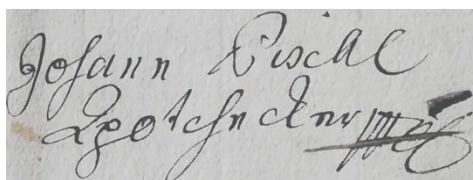 Johann Pischl
Apothecker